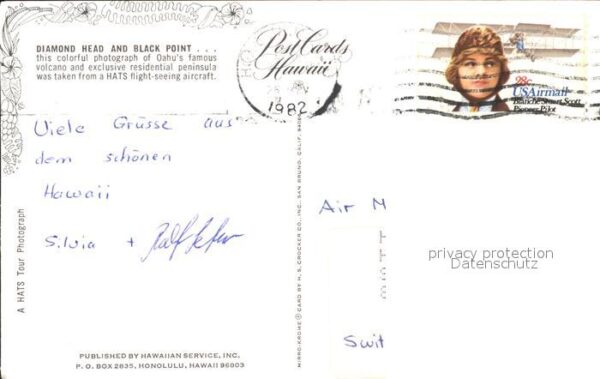 DIAMOND HEAD AND BLACK POINT . . .
this colorful photograph of Oahu's famous
volcano and exclusive residential peninsula
was taken from a HATS flight-seeing aircraft.
Post Cards
Hawaii
1982
28c
USAirmail
Blanche Stuart Scott
Pioneer Pilot
Viele Grüsse aus
dem schönen
Hawaii
Silvia +
A HATS Tour Photograph
MIRRO-KROME® CARD BY H. S. CROCKER CO., INC. SAN BRUNO, CALIF.
Air M
privacy protection
Datenschutz
Swit
PUBLISHED BY HAWAIIAN SERVICE, INC.
P. O. BOX 2835, HONOLULU, HAWAII 96803